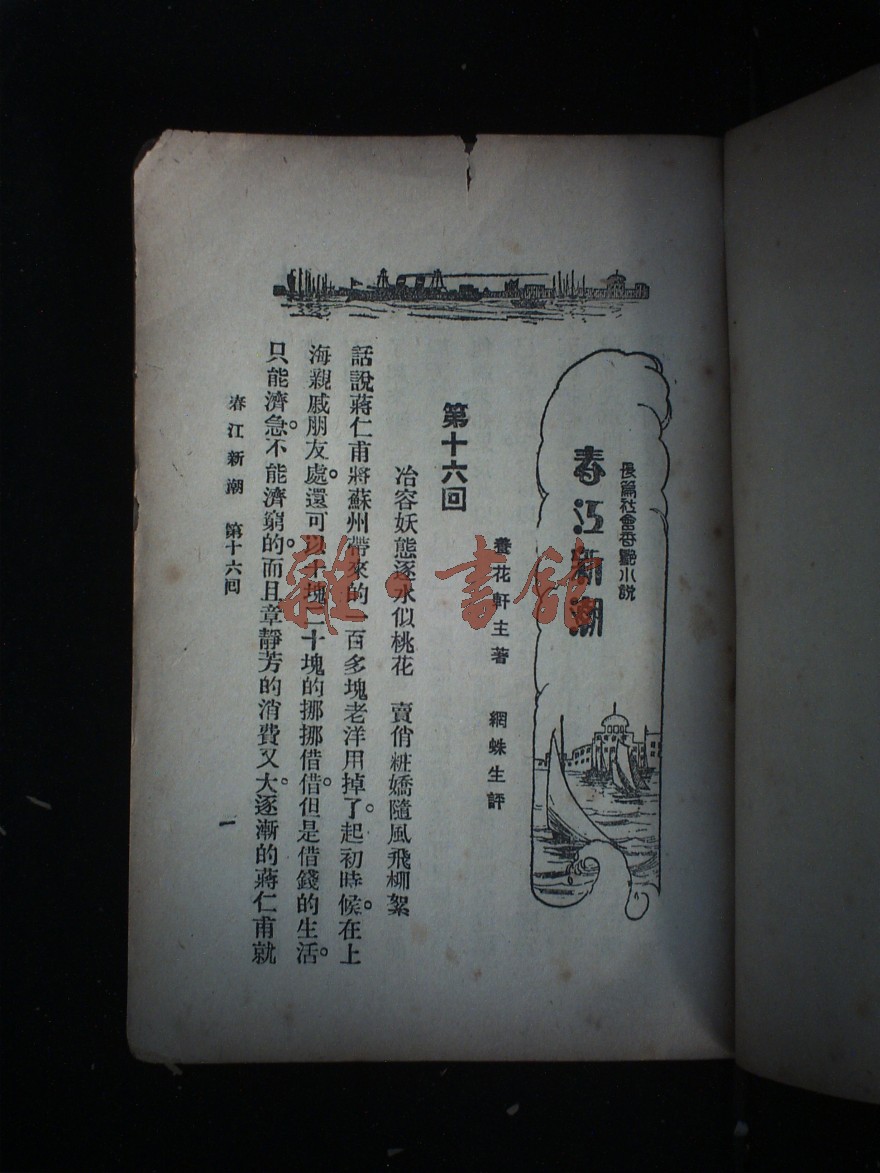 長篇社會香艷小說
春江新潮
養花軒主著　網蛛生評
第十六回
冶容妖態逐水似桃花　賣俏粧嬌隨風飛柳絮
話說蔣仁甫將蘇州帶來的一百多塊老洋用掉了。起初時候。在上
海親戚朋友處。還可以十塊二十塊的挪挪借借。但是借錢的生活。
只能濟急。不能濟窮的。而且章靜芳的消費又大。逐漸的蔣仁甫就
春江新潮　第十六回
一
雜·書館